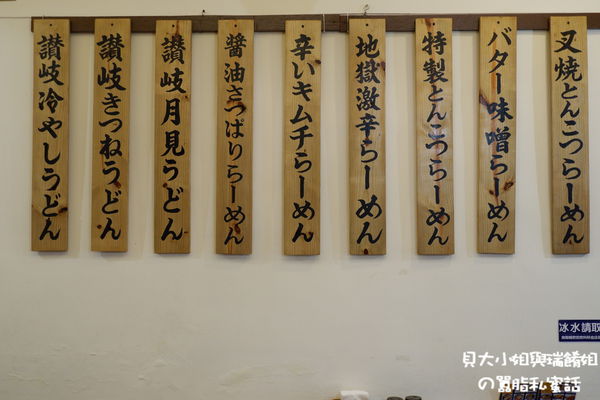 叉焼とんこつらーめん
バター味噌らーめん
特製とんこつらーめん
地獄激辛らーめん
辛いキムチらーめん
醤油さっぱりらーめん
讃岐月見うどん
讃岐きつねうどん
讃岐冷やしうどん
冰水請取
貝大小姐與瑞餚姐
の囂脂私蜜話